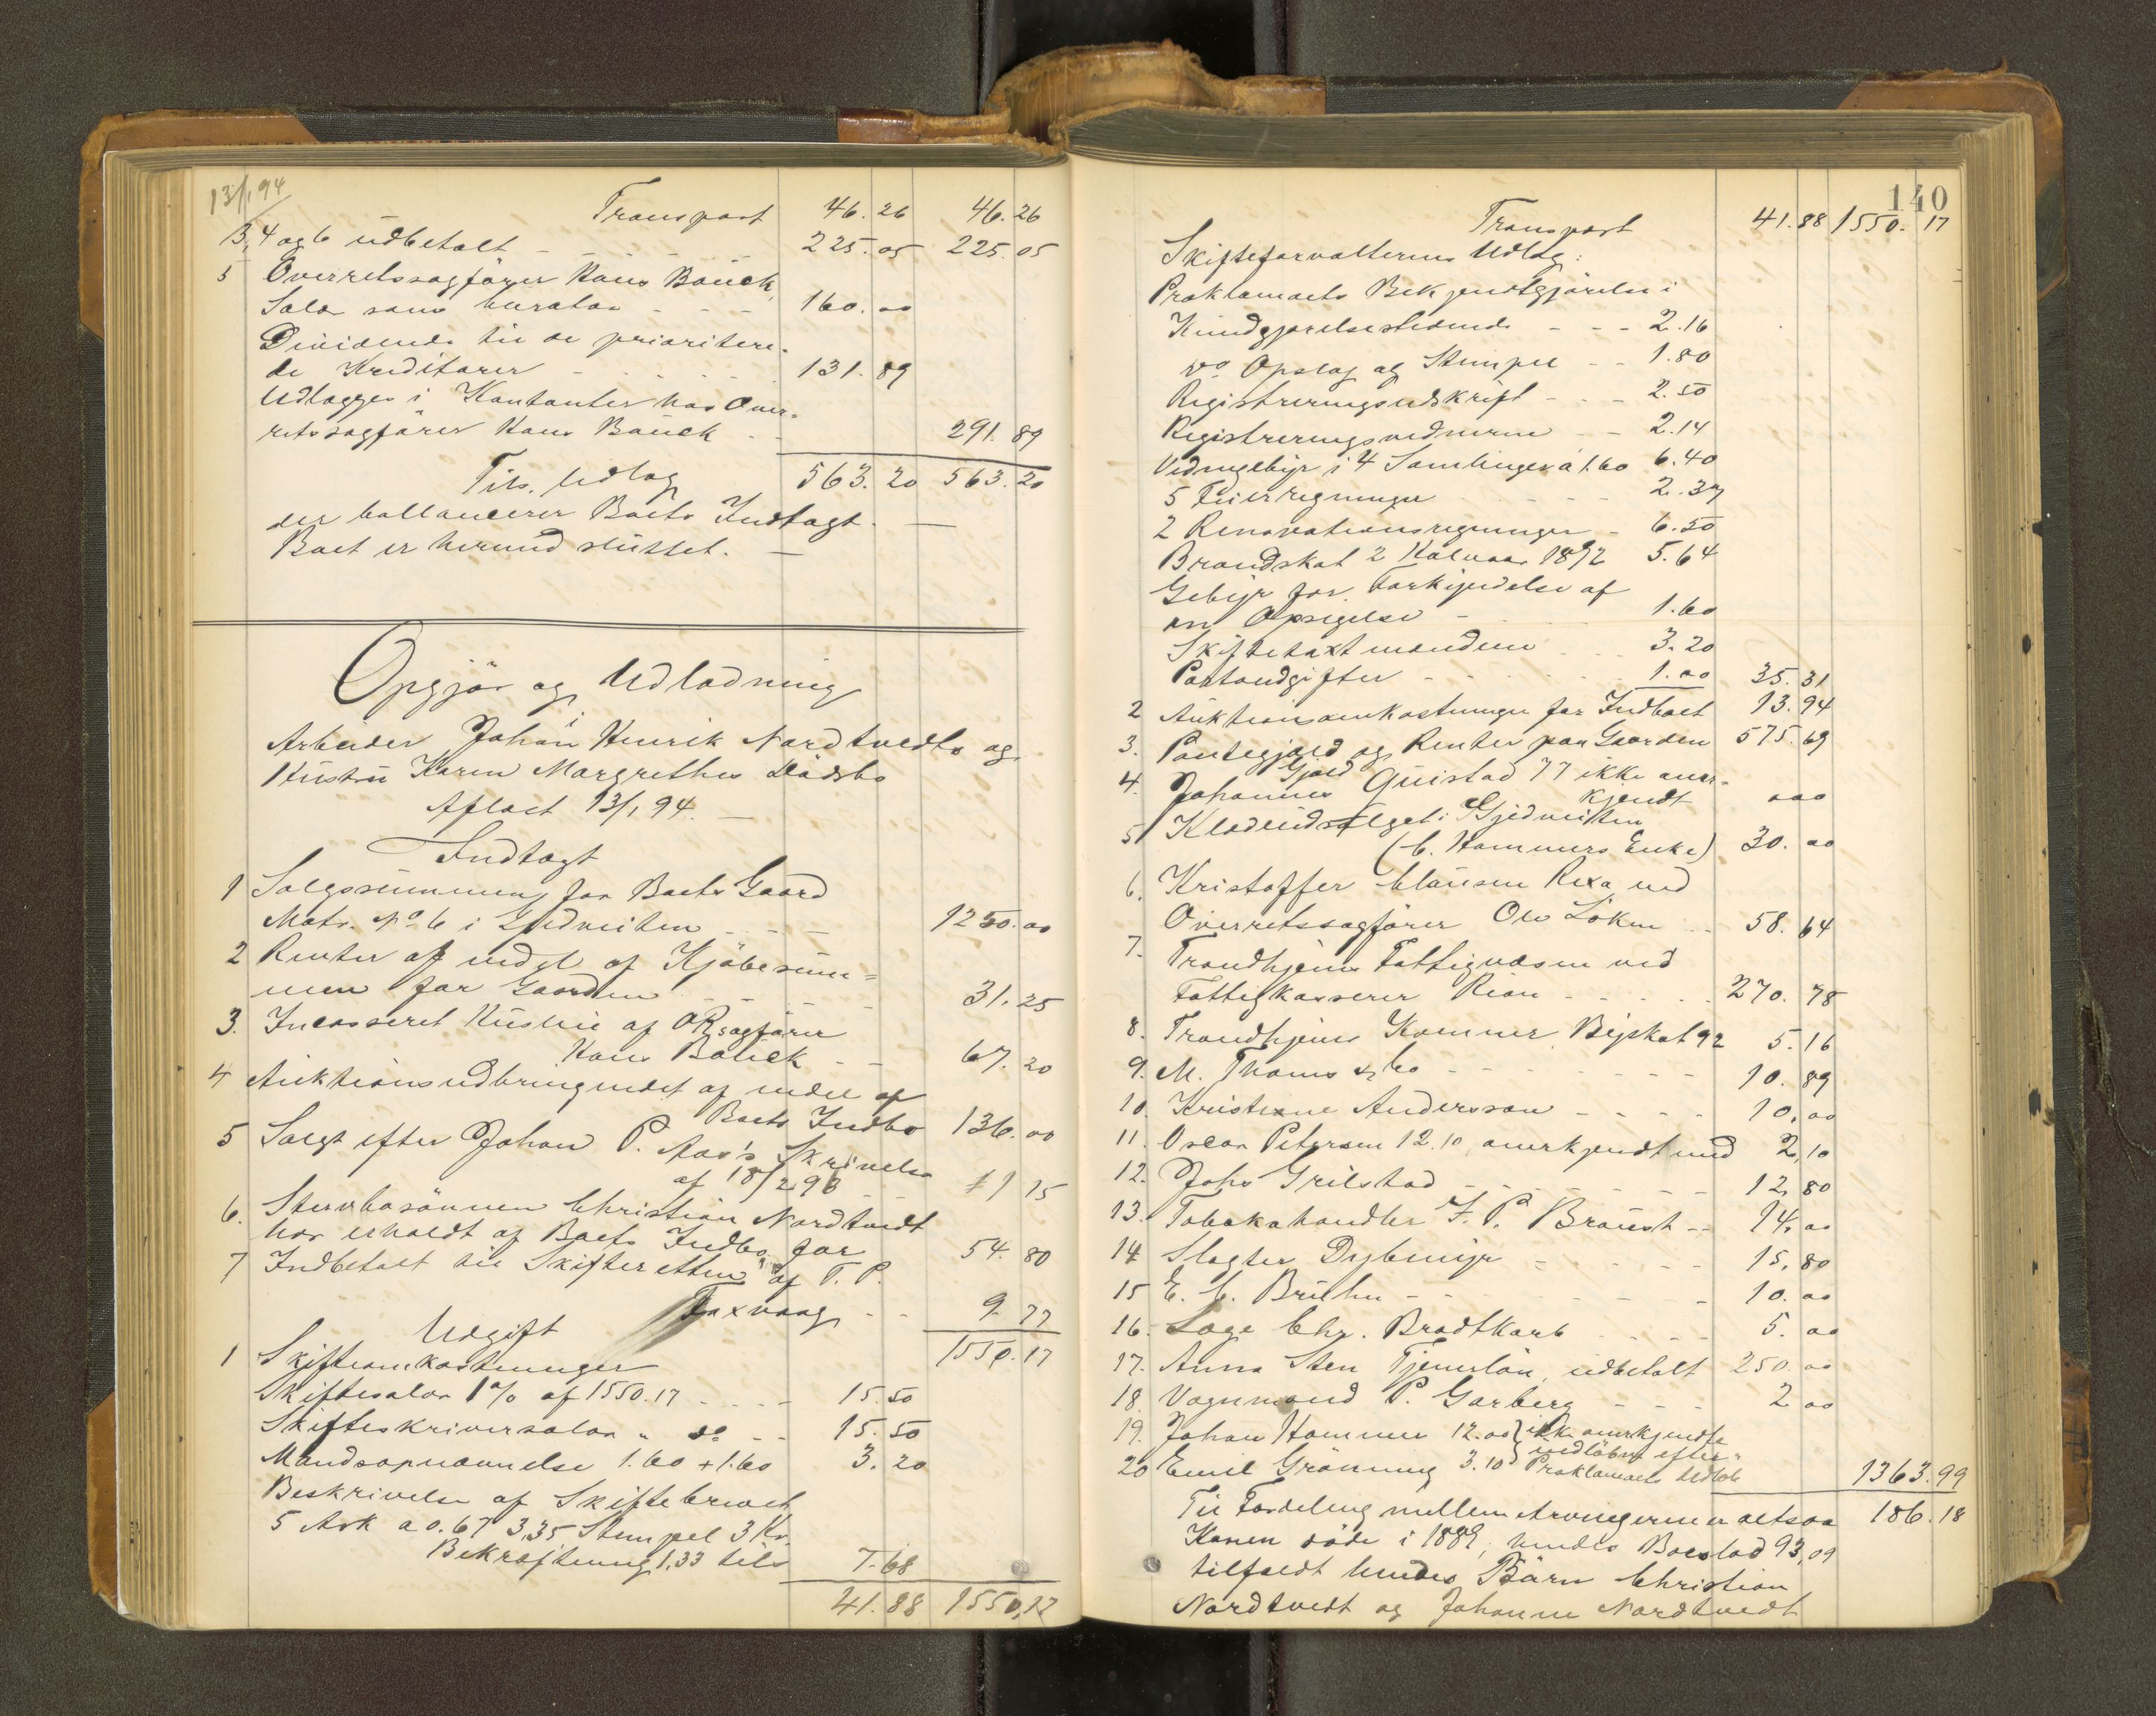 13/1 94
Transport 46.26 46.26
3, 4 og 6 udbetalt 225.05 225.05
5 Overretssagfører Hans Bauck,
Salær som Curator 160.00
Dividende til de prioritere-
de Kreditorer 131.89
Udlægges i Kontanter hos Over-
retssagfører Hans Bauck 291.89
Tils. Udlæg 563.20 563.20
der ballancerer Boets Indtægt.
Boet er hermed sluttet.
Opgjör og Udlodning
i
Arbeider Johan Henrik Nordtvedts og
Hustru Karen Margrethes Dödsbo
Afloct 13/1 94.
Indtægt
1 Salgssummen for Boets Gaard
Matr. No 6 i Gjedveiten 1250.00
2 Renter af endel af Kjöbesum-
men for Gaarden 31.25
3. Incasseret Husleie af ORsagfører
Hans Bauck 67.20
4 Auktionsudbringendet af endel af
Boets Indbo 136.00
5 Solgt efter Johan P. Aas's Skrivelse
af 18/2 93 1 15
6. Stervbosönnen Christian Nordtvedt
har erholdt af Boets Indbo for 54.80
7 Indbetalt til Skifteretten af T. P.
Faxvaag 9.77
1550.17
Udgift
1 Skifteomkostninger
Skiftesalær 1% af 1550.17 15.50
Skifteskriversalær " do 15.50
Mandsopnævnelse 1.60 + 1.60 3.20
Beskrivelse af Skiftebrevet
5 Ark a 0.67 3,35 Stempel 3 Kr.
Bekræftning 1,33 tils 7.68
41.88 1550,17
140
Transport 41.88 1550.17
Skifteforvalterens Udlæg:
Proklamaets Bekjendtgjörelse i
Kundgjörelsestidende 2.16
do Opslag og Stempel 1.80
Registreringsudskrift 2.50
Registreringsvidnerne 2.14
Vidnegebyr i 4 Samlinger á 1.60 6.40
5 Feierregninger 2.37
2 Renovationsregninger 6.50
Brandskat 2 Halvaar 1892 5.64
Gebyr for Forkyndelse af
en Opsigelse 1.60
Skiftetaxtmændene 3.20
Portoudgifter 1.00 35.31
2 Auktionsomkostninger for Indboet 13.94
3. Pantegjæld og Renter paa Gaarden 575.69
4. Johannes Gjæld Quistad 77 ikke aner-
kjendt 000
5 Klædeudsalget i Gjedveiten
(C. Hammers Enke) 30.00
6. Kristoffer Clausen Rixa ved
Overretssagfører Ole Löken 58.64
7. Trondhjems Fattigvæsen ved
Fattigkasserer Rian 270.78
8. Trondhjems Kæmner, Byskat 92 5.16
9. M. Thams & Co 10.89
10. Kristine Andersson 10.00
11. Oscar Petersen 12.10, anerkjendt med 2,10
12. Johs Grilstad 12,80
13. Tobakshandler F. P. Braust 14,00
14 Slagter Dybmyr 15,80
15 E. C. Bruhn 10.00
16. Læge Chr. Bradtkorb 5.00
17. Anna Sten Tjenerlön, udbetalt 250.00
18. Vognmand P. Garberg 2 00
19. Johan Hammer 12.00 } ikke anerkjendte
20 Emil Grönning 3.10 } indløbne efter Proklamaets Udløb 1363.99
Til Fordeling mellem Arvingerne er altsaa 186.18
Konen döde i 1889, hendes Boeslod 93,09
tilfaldt hendes Börn Christian
Nordtvedt og Johanne Nordtvedt